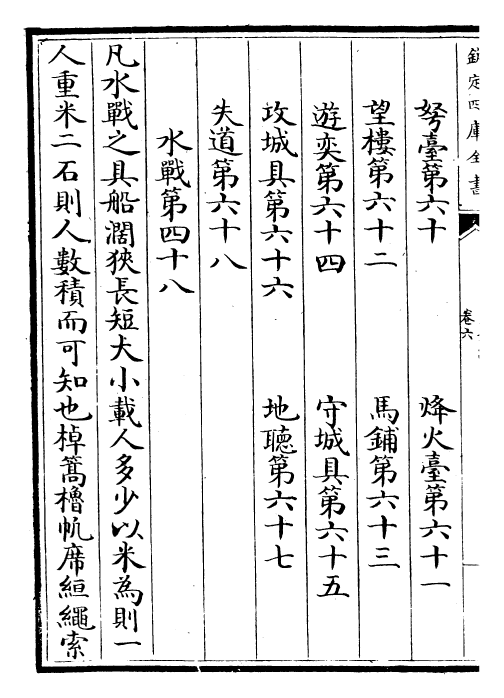 欽定四庫全書
卷六
弩臺第六十
烽火臺第六十一
望樓第六十二
馬鋪第六十三
遊奕第六十四
守城具第六十五
攻城具第六十六
地聽第六十七
失道第六十八
水戰第四十八
凡水戰之具船濶狹長短大小載人多少以米為則一
人重米二石則人數積而可知也棹篙櫓帆席絙繩索